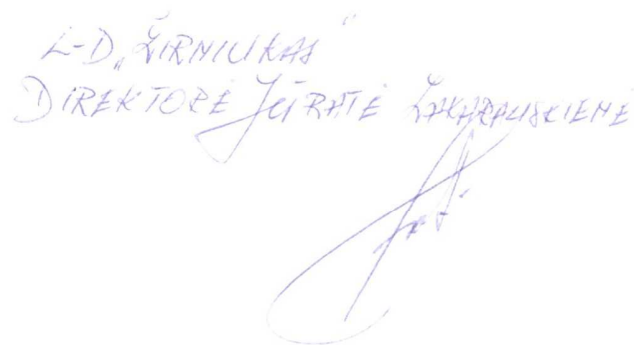 L-D „ŽIRNIUKAS“
DIREKTORĖ JŪRATĖ ZAKARAUSKIENĖ